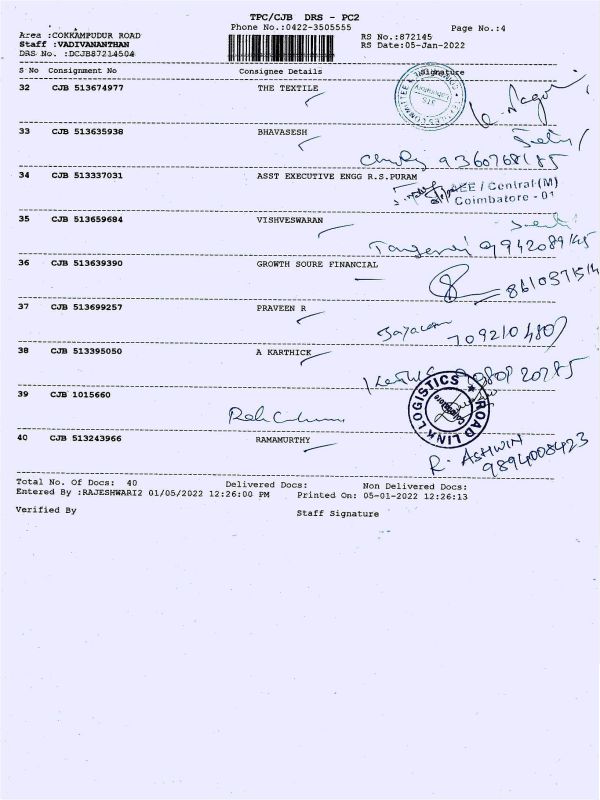 TPC/CJB DRS - PC2
Phone No.:0422-3505555 Page No.:4
Area :COKKAMPUDUR ROAD RS No.:872145
Staff :VADIVANANTHAN RS Date:05-Jan-2022
DRS No. :DCJB87214504
S No Consignment No Consignee Details Signature
32 CJB 513674977 THE TEXTILE
33 CJB 513635938 BHAVASESH
9360768185
34 CJB 513337031 ASST EXECUTIVE ENGG R.S.PURAM
AEE / Central (M)
Coimbatore - 01
35 CJB 513659684 VISHVESWARAN
9942089145
36 CJB 513639390 GROWTH SOURE FINANCIAL
37 CJB 513699257 PRAVEEN R
38 CJB 513395050 A KARTHICK
39 CJB 1015660
ROAD LINK LOGISTICS
Coimbatore
40 CJB 513243966 RAMAMURTHY
R. ASHWIN
9894008423
Total No. Of Docs: 40 Delivered Docs: Non Delivered Docs:
Entered By :RAJESHWARI2 01/05/2022 12:26:00 PM Printed On: 05-01-2022 12:26:13
Verified By Staff Signature